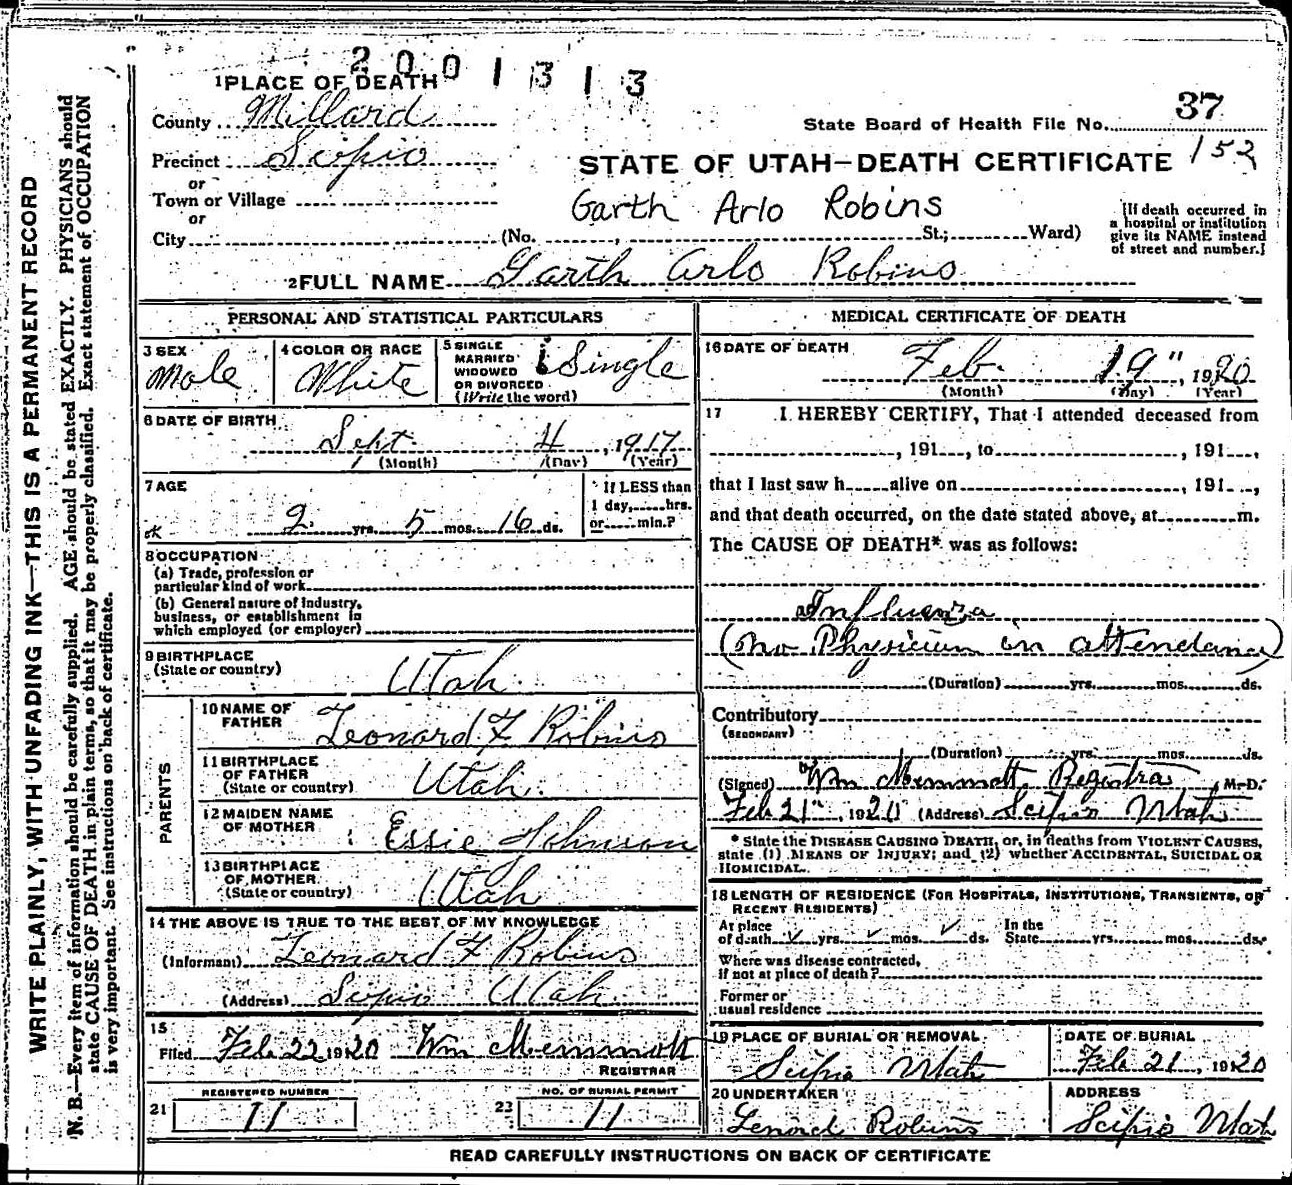 2001313
1 PLACE OF DEATH
County Millard
State Board of Health File No. 37
152
Precinct Scipio
STATE OF UTAH—DEATH CERTIFICATE
or
Town or Village
Garth Arlo Robins
or
City (No. , St.; Ward)
[If death occurred in
a hospital or institution
give its NAME instead
of street and number.]
2 FULL NAME Garth Arlo Robins
WRITE PLAINLY, WITH UNFADING INK—THIS IS A PERMANENT RECORD
N. B.—Every item of information should be carefully supplied. AGE should be stated EXACTLY. PHYSICIANS should
state CAUSE OF DEATH in plain terms, so that it may be properly classified. Exact statement of OCCUPATION
is very important. See instructions on back of certificate.
PERSONAL AND STATISTICAL PARTICULARS
3 SEX
Male
4 COLOR OR RACE
White
5 SINGLE
MARRIED
WIDOWED
OR DIVORCED
(Write the word)
Single
6 DATE OF BIRTH
Sept 4, 1917
(Month) (Day) (Year)
7 AGE
2 yrs. 5 mos. 16 ds.
If LESS than
1 day, hrs.
or min.?
8 OCCUPATION
(a) Trade, profession or
particular kind of work
(b) General nature of Industry,
business, or establishment in
which employed (or employer)
9 BIRTHPLACE
(State or country)
Utah
PARENTS
10 NAME OF
FATHER
Leonard F Robins
11 BIRTHPLACE
OF FATHER
(State or country)
Utah
12 MAIDEN NAME
OF MOTHER
Essie Johnson
13 BIRTHPLACE
OF MOTHER
(State or country)
Utah
14 THE ABOVE IS TRUE TO THE BEST OF MY KNOWLEDGE
(Informant) Leonard F Robins
(Address) Scipio Utah
15
Filed Feb 22 1920 Wm Memmott
REGISTRAR
REGISTERED NUMBER
21 11
NO. OF BURIAL PERMIT
22 11
MEDICAL CERTIFICATE OF DEATH
16 DATE OF DEATH
Feb. 19", 1920
(Month) (Day) (Year)
17 I HEREBY CERTIFY, That I attended deceased from
, 191 , to , 191 ,
that I last saw h alive on , 191 ,
and that death occurred, on the date stated above, at m.
The CAUSE OF DEATH* was as follows:
Influenza
(No Physicium in attendance)
(Duration) yrs. mos. ds.
Contributory
(SECONDARY)
(Duration) yrs. mos. ds.
(Signed) Wm Memmott, Registra, M.D.
Feb 21", 1920 (Address) Scipio Utah
* State the DISEASE CAUSING DEATH, or, in deaths from VIOLENT CAUSES,
state (1) MEANS OF INJURY; and (2) whether ACCIDENTAL, SUICIDAL OR
HOMICIDAL.
18 LENGTH OF RESIDENCE (FOR HOSPITALS, INSTITUTIONS, TRANSIENTS, OR
RECENT RESIDENTS)
At place
of death yrs. mos. ds.
In the
State yrs. mos. ds.
Where was disease contracted,
if not at place of death?
Former or
usual residence
19 PLACE OF BURIAL OR REMOVAL
Scipio Utah
DATE OF BURIAL
Feb 21, 1920
20 UNDERTAKER
Lenord Robins
ADDRESS
Scipio Utah
READ CAREFULLY INSTRUCTIONS ON BACK OF CERTIFICATE